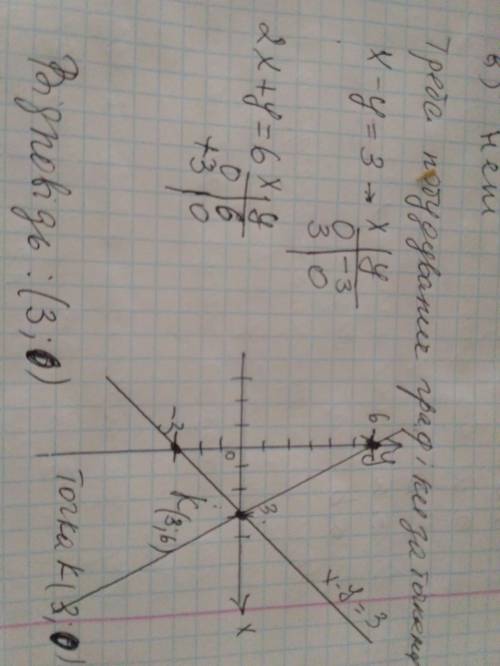 в)
Треба побудувати граф, і
x - y = 3 → x | y
0 | -3
3 | 0
2x + y = 6 x, y
0 | 6
+3 | 0
6 y
3
x
0
-3
x-y=3
K(3;6)
Точка K(3;0)
Відповідь: (3;0)